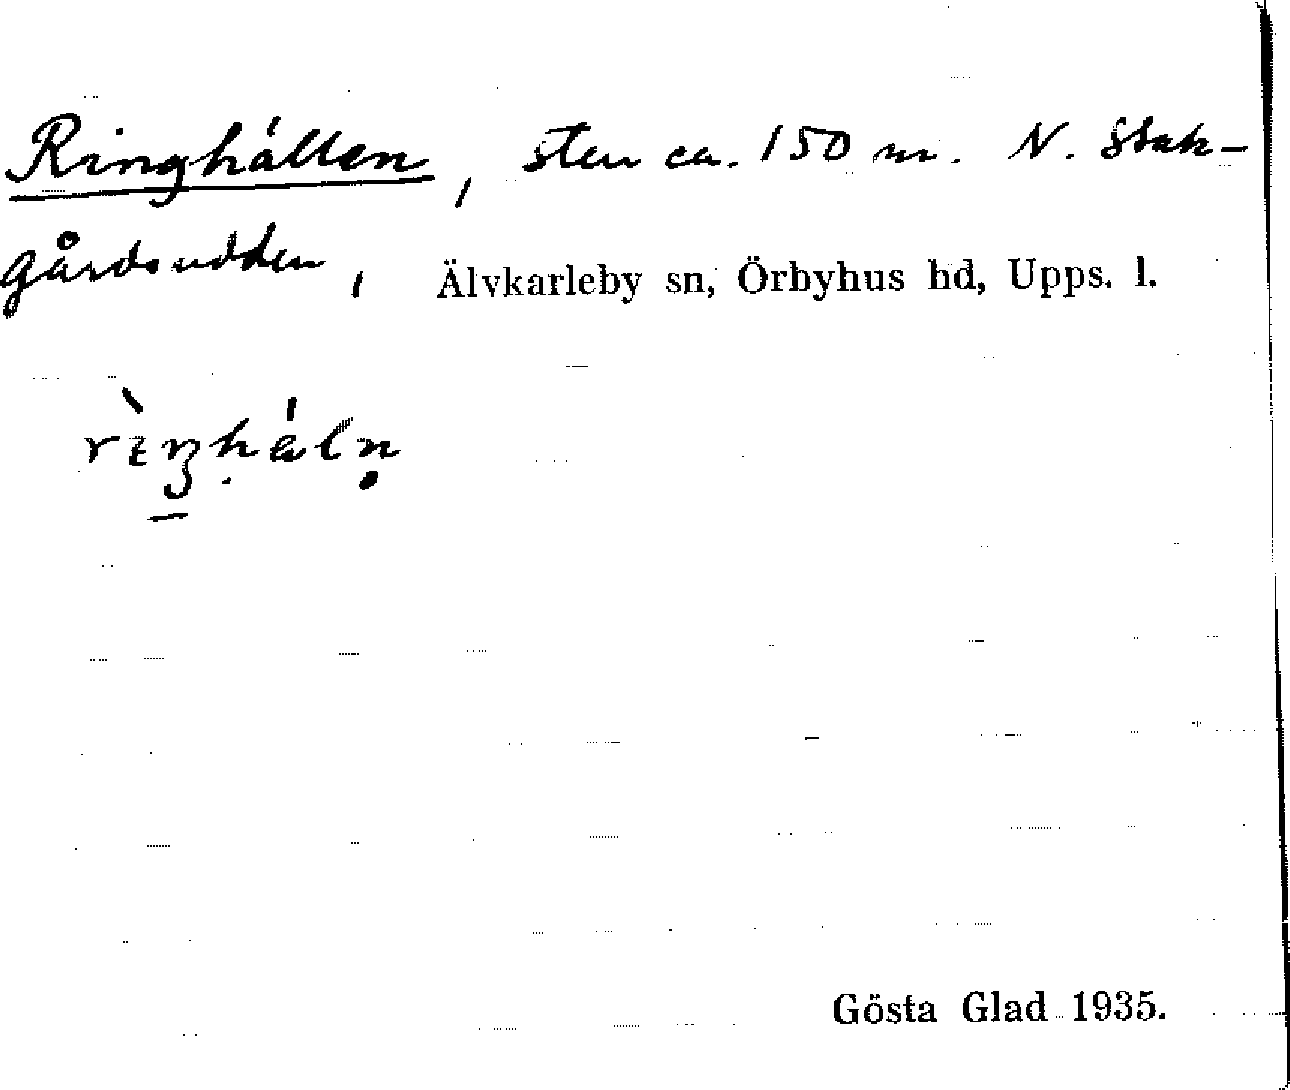 Ringhállen, sten ca. 150 m. N. Stak-
gårdsudden, Älvkarleby sn, Örbyhus hd, Upps. l.
Gösta Glad 1935.